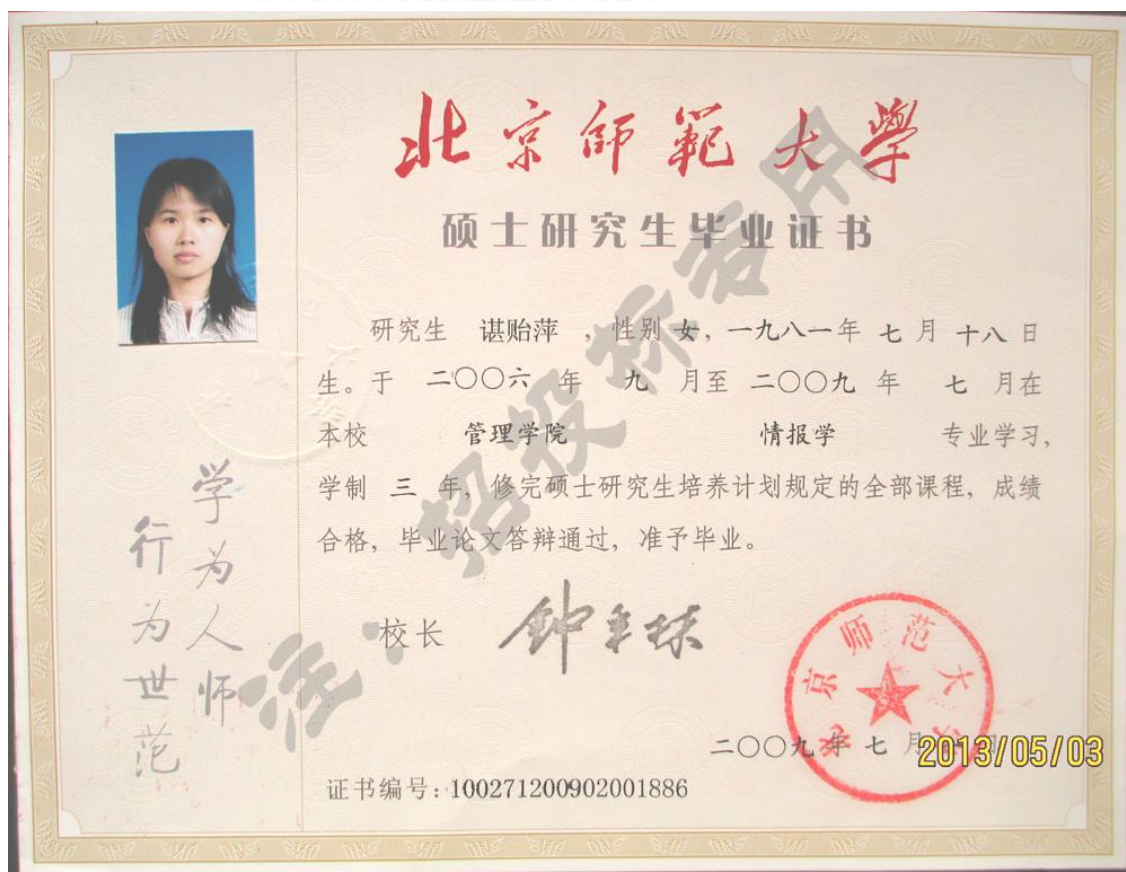 北京师范大学
硕士研究生毕业证书
研究生 谌贻萍 ,性别 女, 一九八一年 七 月 十八 日
生。于 二〇〇六 年 九 月至 二〇〇九 年 七 月在
本校 管理学院 情报学 专业学习,
学制 三 年, 修完硕士研究生培养计划规定的全部课程, 成绩
合格, 毕业论文答辩通过, 准予毕业。
校长 钟秉林
北京师范大学
二〇〇九 年 七 月
2013/05/03
证书编号:100271200902001886
学为人师
行为世范
注:招投标专用